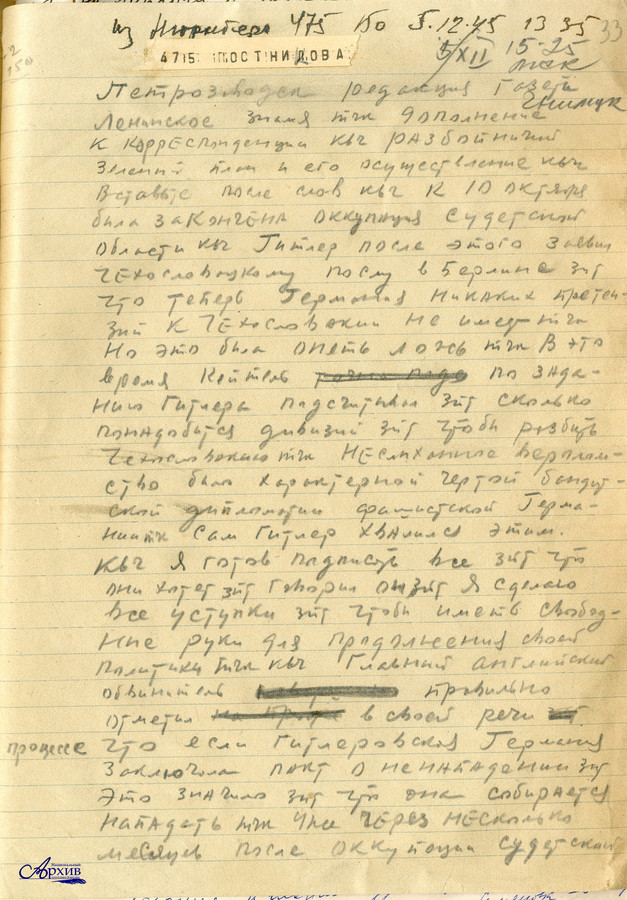 из Нюрнберга 475 50 5.12.45 13 35
33
4715 ПОСТНИКОВА
5/XII 15-25
Петрозаводск редакция газеты
Ленинское знамя тчк дополнение
к корреспонденции квч разбойничий
Зеленый план и его осуществление квч
Вставьте после слов квч К 10 октября
была закончена оккупация Судетской
области квч Гитлер после этого заявил
Чехословацкому послу в Берлине зпт
что теперь Германия никаких претен-
зий к Чехословакии не имеет тчк
Но это была опять ложь тчк В это
время Кейтель по зада-
нию Гитлера подсчитывал зпт сколько
понадобится дивизий зпт чтобы разбить
Чехословакию тчк Неслыханное веролом-
ство было характерной чертой бандит-
ской дипломатии фашистской Герма-
нии тчк Сам Гитлер хвалился этим.
квч Я готов подписать все зпт что
они хотят зпт говорил он зпт Я сделаю
все уступки зпт чтобы иметь свобод-
ные руки для продолжения своей
политики тчк квч Главный английский
обвинитель правильно
отметил в своей речи
процессе что если гитлеровская Германия
заключила пакт о ненападении зпт
это значило зпт что она собирается
нападать тчк Уже через несколько
месяцев после оккупации Судетской
Национальный
Архив